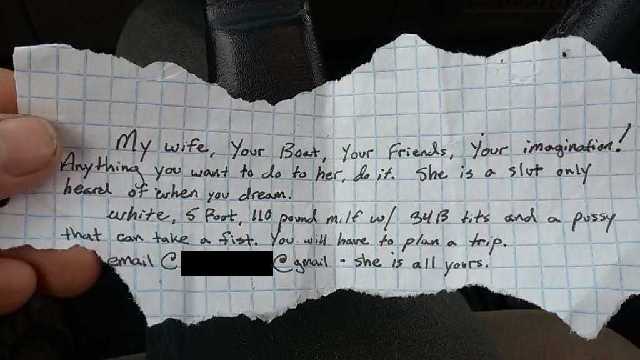 My wife, Your Boat, Your friends, Your imagination!
Anything you want to do to her, do it. She is a slut only
heard of when you dream.
white, 5 foot, 110 pound milf w/ 34B tits and a pussy
that can take a fist. You will have to plan a trip.
email @ @gmail - she is all yours.